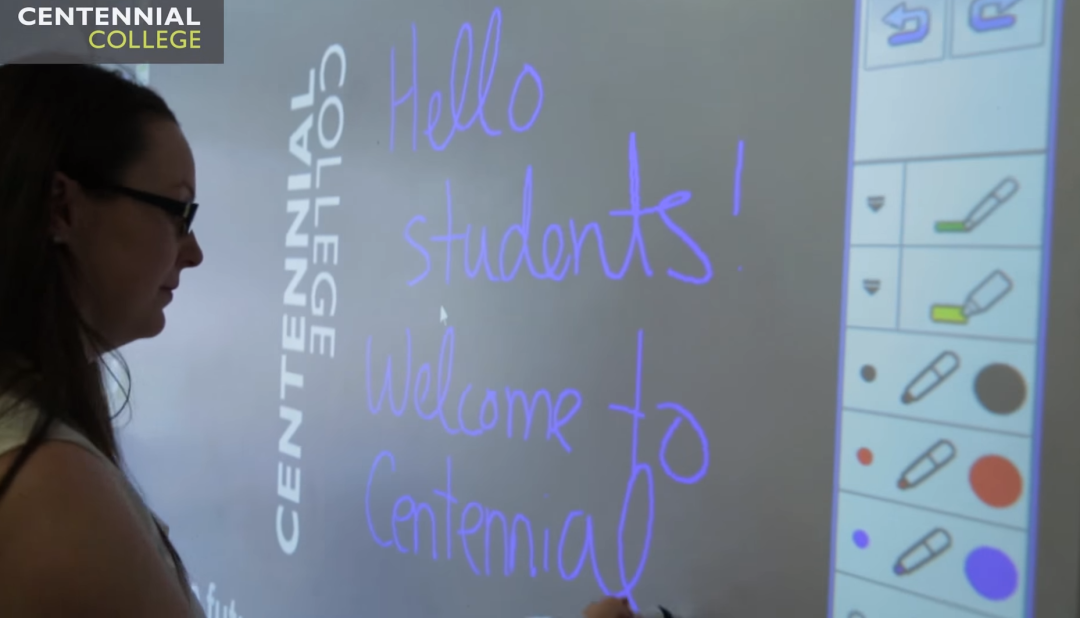 CENTENNIAL
COLLEGE
CENTENNIAL
COLLEGE
Hello
students!
Welcome to
Centennial